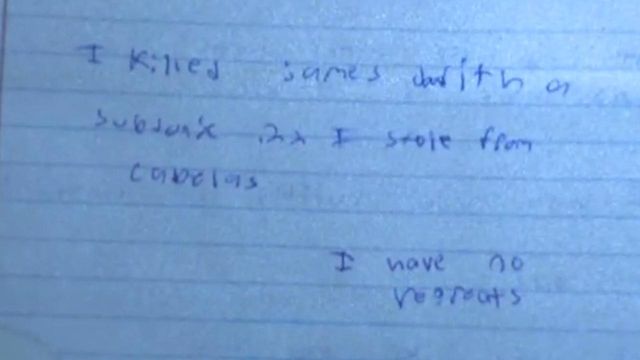 I killed james with a
subsonic .22 I stole from
cabelas
I have no
regreats